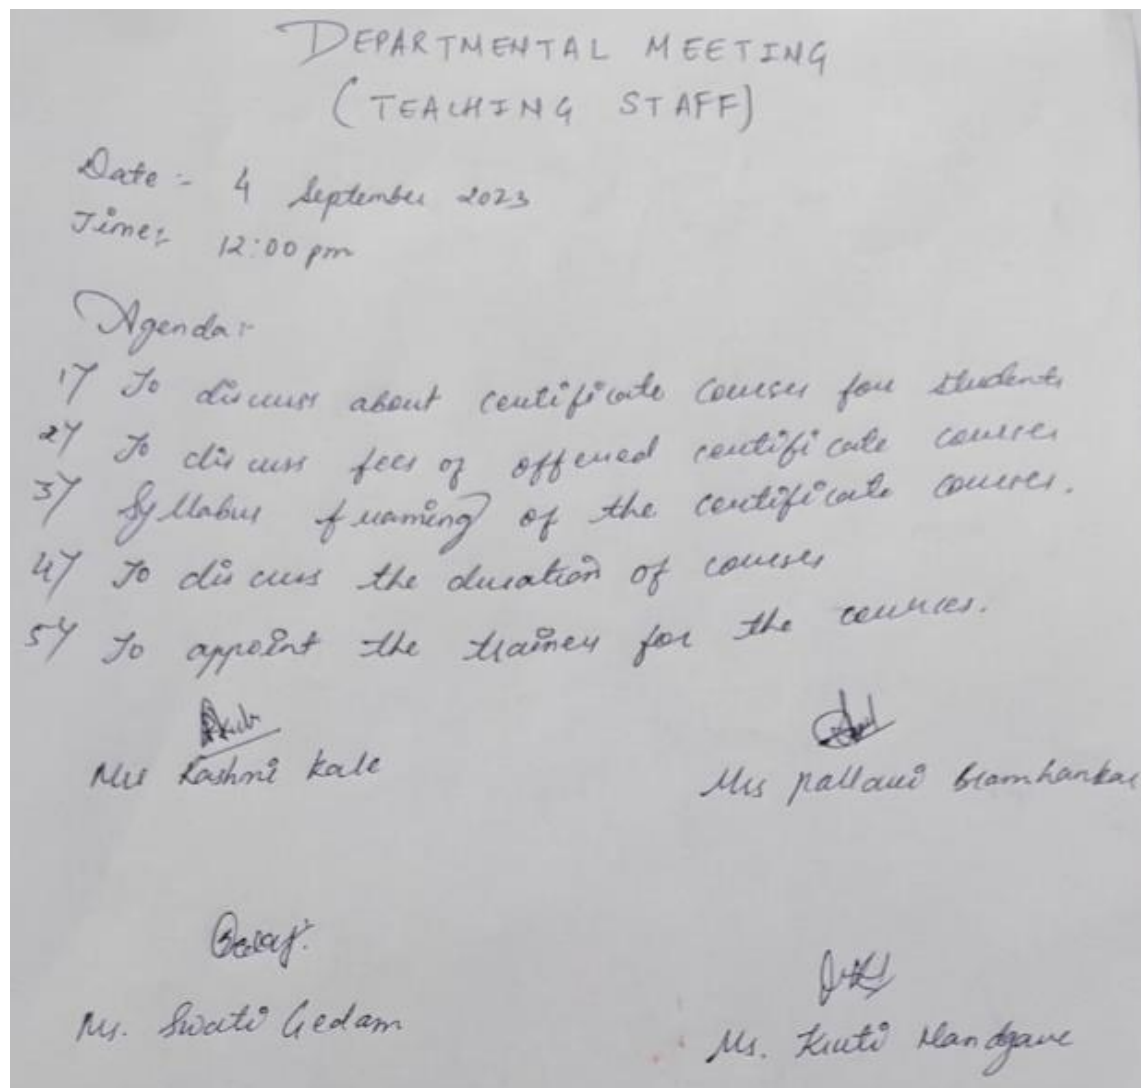 DEPARTMENTAL MEETING
(TEACHING STAFF)
Date :- 4 September 2023
Time:- 12:00 pm
Agenda:-
1) To discuss about certificate courses for students
2) To discuss fees of offered certificate courses
3) Syllabus framing of the certificate courses.
4) To discuss the duration of courses
5) To appoint the trainer for the courses.
Mrs Rashmi Kale
Mrs Pallavi Bramhankar
Ms. Swati Gedam
Ms. Kruti Mandgave